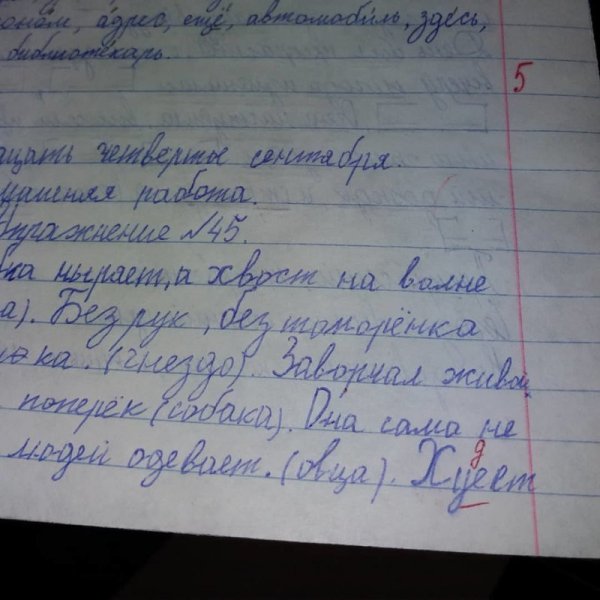 адрес, ещё, автомобиль, здесь,
библиотекарь.
5
четвёртые сентября.
работа.
№45.
ныряет, а хвост на волне
Без рук, без топорёнка
(гнездо). Заворчал живой
поперёк (собака). Она сама не
людей одевает. (овца). Хуеет
д